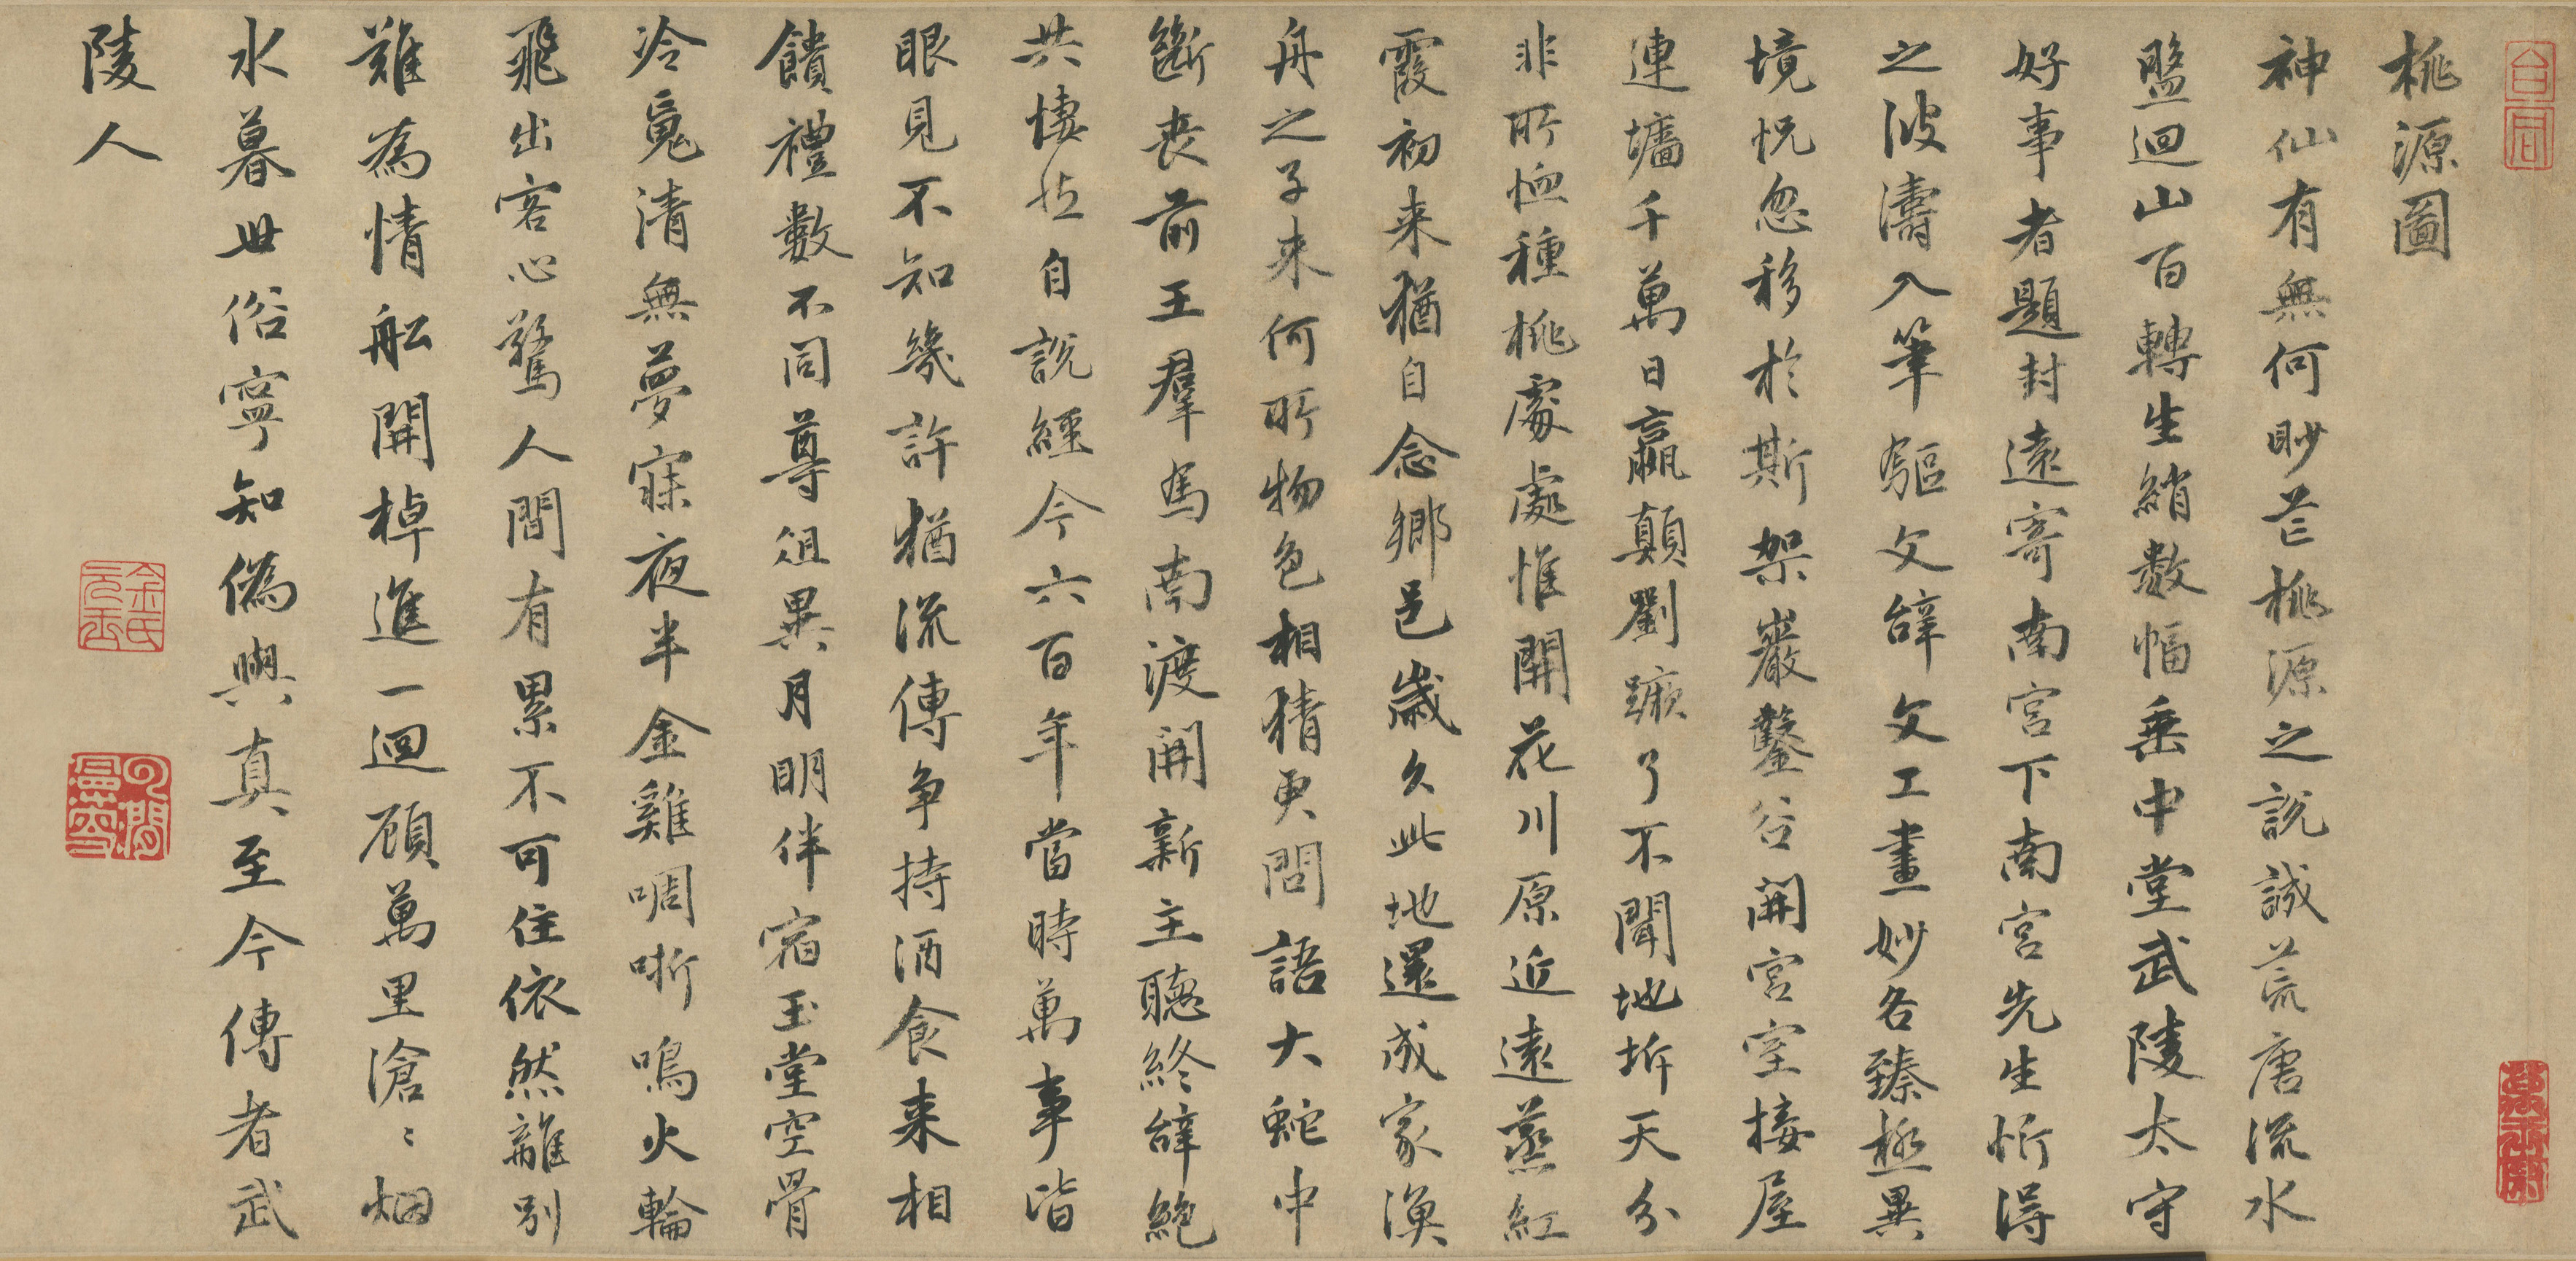 桃源圖
神仙有無何眇芒桃源之說誠荒唐流水
盤迴山百轉生綃数幅垂中堂武陵太守
好事者題封遠寄南宮下南宮先生忻得
之波濤入筆驅文辭文工畫妙各臻極異
境怳忽移於斯架巖鑿谷開宮室接屋
連墻千萬日嬴顛劉蹶了不聞地坼天分
非所恤種桃處處惟開花川原近遠蒸紅
霞初来猶自念鄉邑歲久此地還成家漁
舟之子来何所物色相猜更問語大蛇中
斷喪前王羣馬南渡開新主聽終辭絕
共悽然自說經今六百年當時萬事皆
眼見不知幾許猶流傳争持酒食来相
饋禮數不同尊俎異月明伴宿玉堂空骨
冷䰟清無夢寐夜半金雞啁哳鳴火輪
飛出客心驚人間有累不可住依然離別
難為情舩開棹進一迴顧萬里滄〻烟
水暮世俗寧知偽與真至今傳者武
陵人